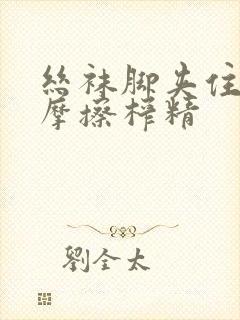 丝袜脚夹住
摩擦榨精
劉全太